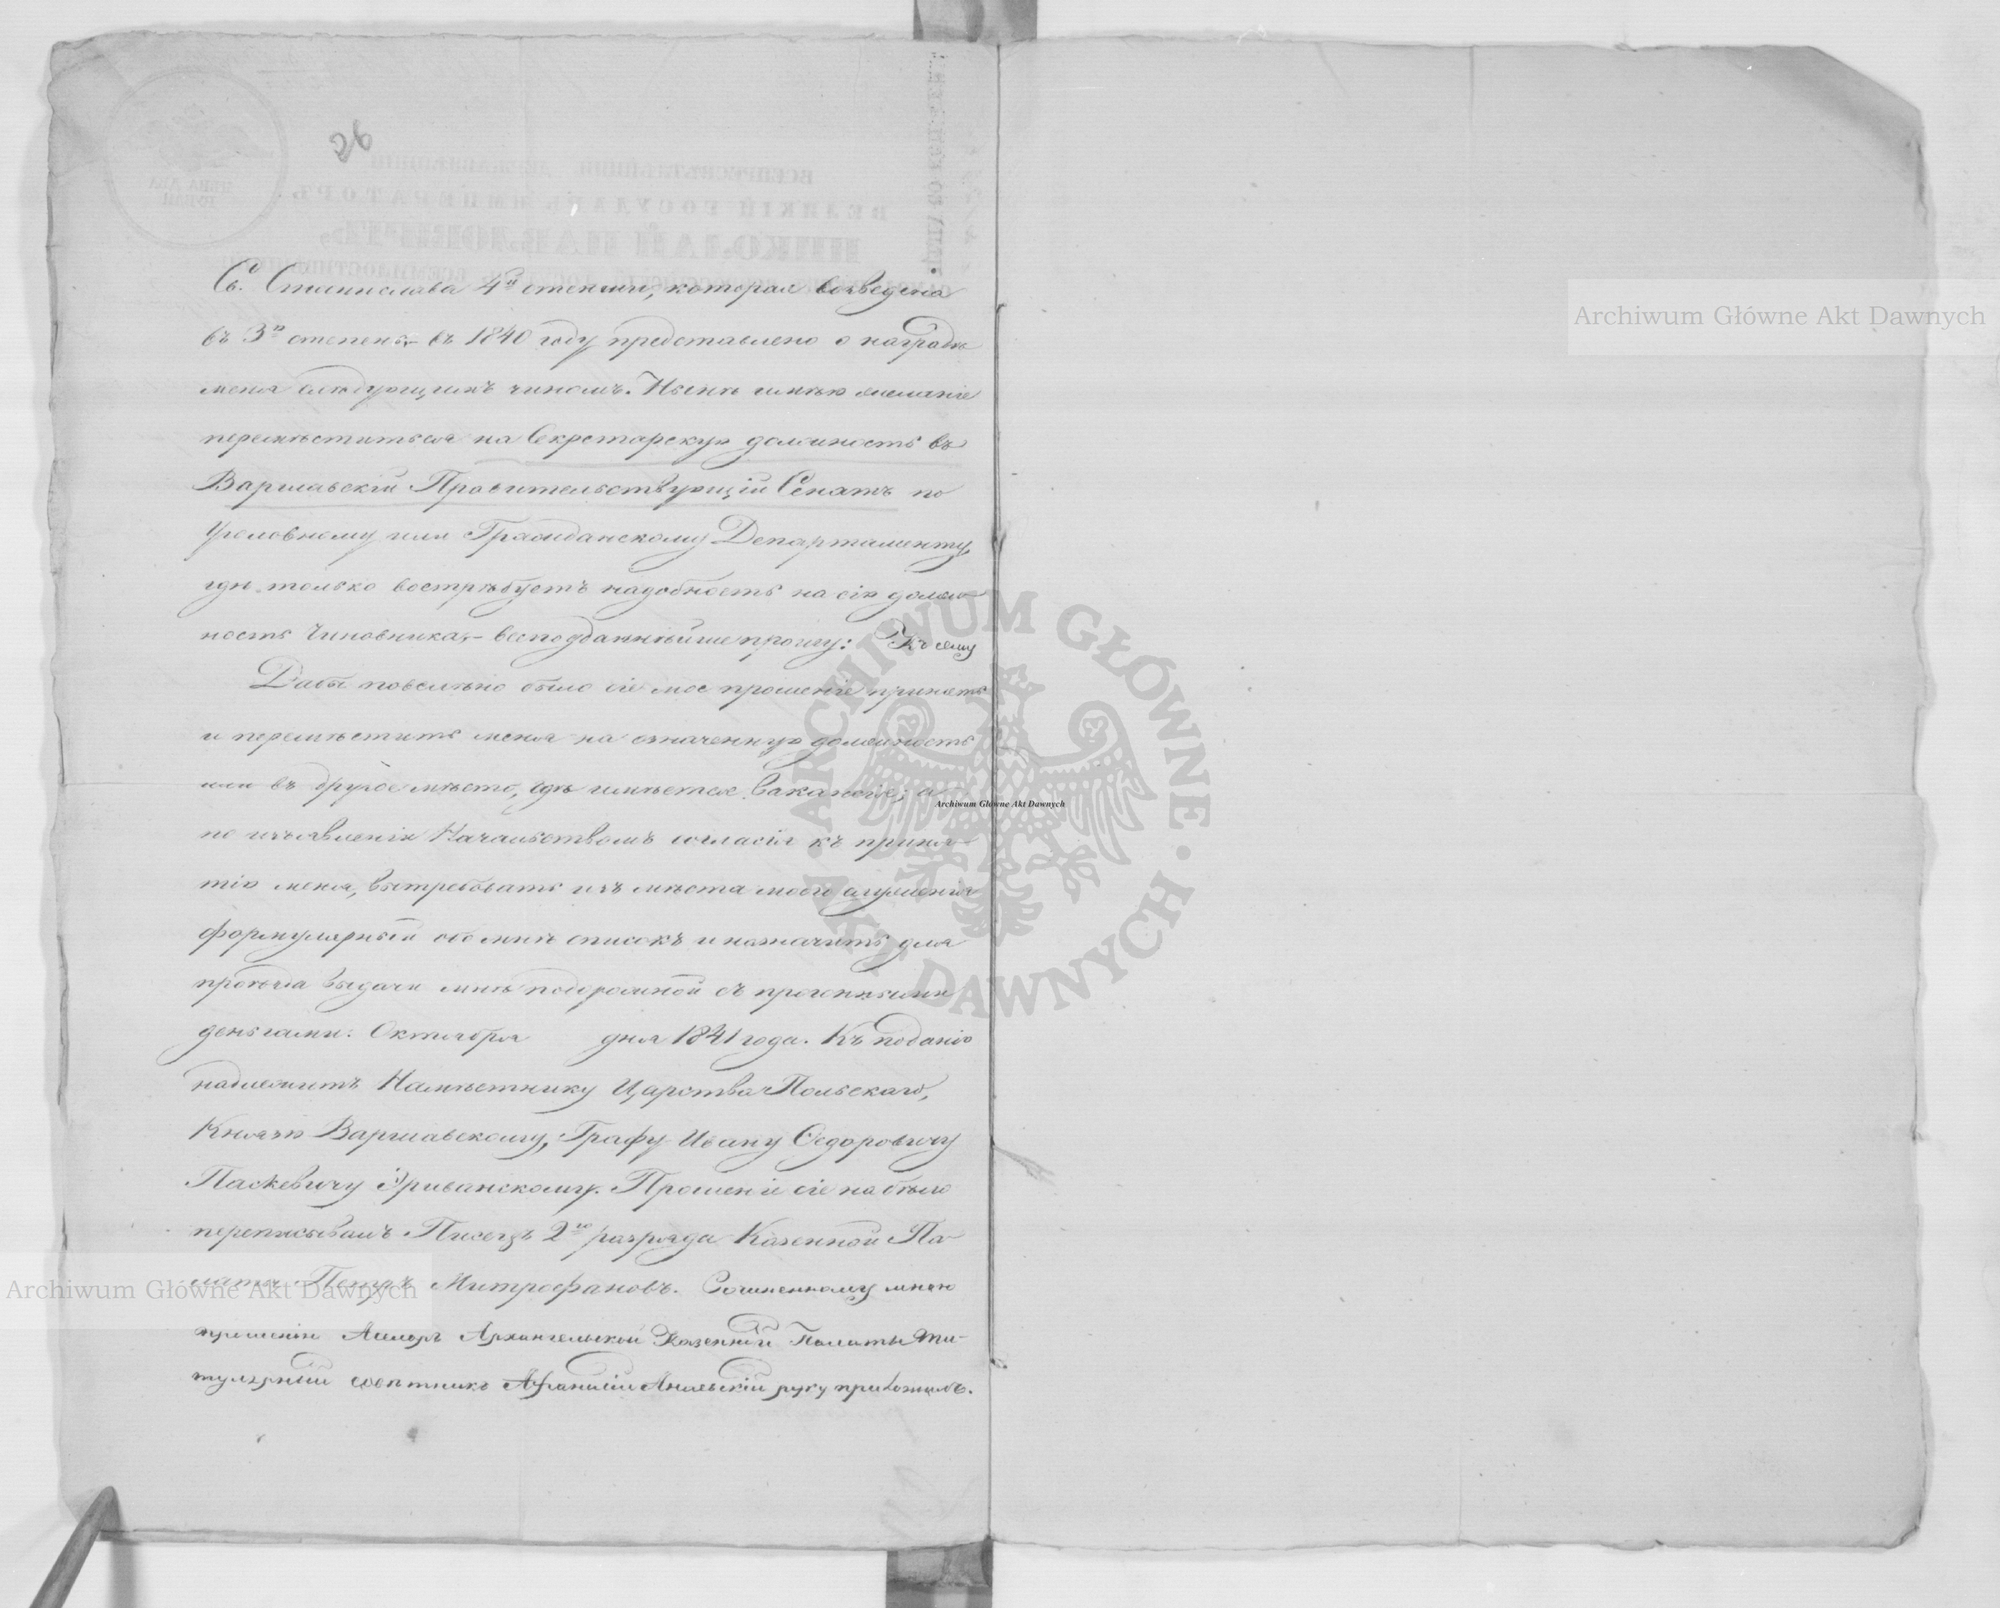 26
Св. Станислава 4й степени, которая возведена
въ 3ю степень, – въ 1840 году представлено о наградѣ
меня слѣдующимъ чиномъ. Нынѣ имѣю желаніе
перемѣститься на Секретарскую должность въ
Варшавскій Правительствующій Сенатъ по
Уголовному или Гражданскому Департаменту,
гдѣ только востребуетъ надобность на сію долж-
ность Чиновника, – всеподданнѣйше прошу: Къ сему
Дабы повелѣно было сіе мое прошеніе принять
и перемѣстить меня на означенную должность
или въ другое мѣсто, гдѣ имѣется вакансія; а
по изъявленіи Начальствомъ согласія къ приня-
тію меня, вытребовать изъ мѣста моего служенія
формулярный обо мнѣ списокъ и назначить для
проѣзда выдачи мнѣ подорожной съ прогонными
деньгами. Октября дня 1841 года. Къ поданію
надлежитъ Намѣстнику Царства Польскаго,
Князю Варшавскому, Графу Ивану Ѳедоровичу
Паскевичу Эриванскому. Прошеніе сіе на бѣло
переписывалъ Писецъ 2го разряда Казенной Па-
латы Петръ Митрофановъ. Сочиненному мною
прошенію Ассесоръ Архангельской Казенной Палаты Ти-
тулярный совѣтникъ руку приложилъ.
Archiwum Główne Akt Dawnych
Archiwum Główne Akt Dawnych
Archiwum Główne Akt Dawnych
ARCHIWUM GŁÓWNE · AKT DAWNYCH ·